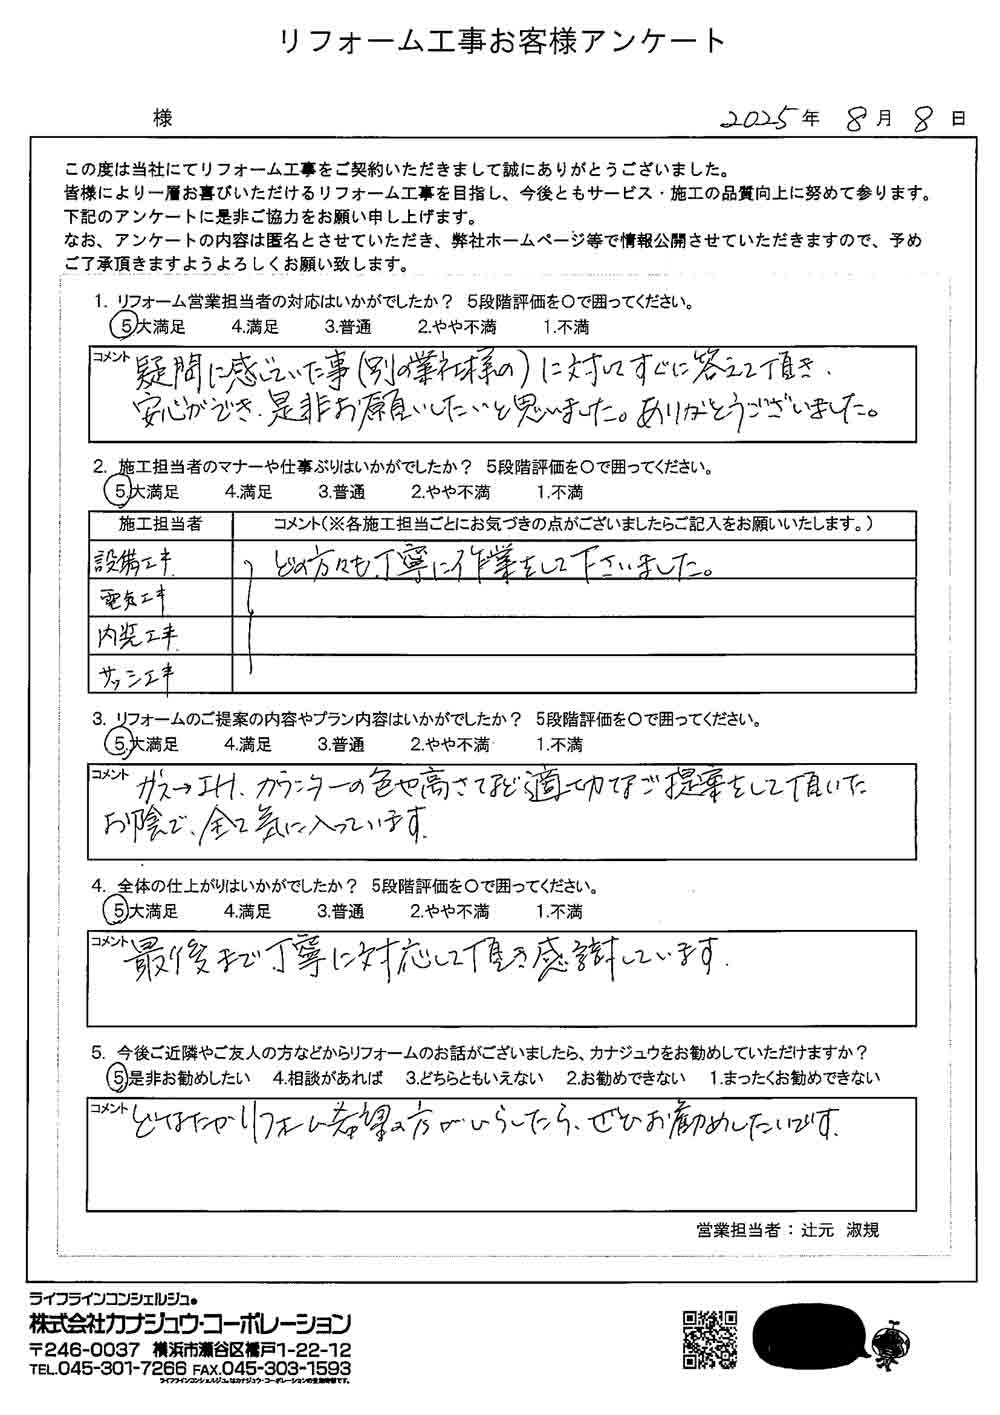 リフォーム工事お客様アンケート
様 2025年 8月 8日
この度は当社にてリフォーム工事をご契約いただきまして誠にありがとうございました。
皆様により一層お喜びいただけるリフォーム工事を目指し、今後ともサービス・施工の品質向上に努めて参ります。
下記のアンケートに是非ご協力をお願い申し上げます。
なお、アンケートの内容は匿名とさせていただき、弊社ホームページ等で情報公開させていただきますので、予め
ご了承頂きますようよろしくお願い致します。
1. リフォーム営業担当者の対応はいかがでしたか? 5段階評価を○で囲ってください。
5大満足 4.満足 3.普通 2.やや不満 1.不満
コメント 疑問に感じていた事(別の業社様の)に対してすぐに答えて頂き、
安心ができ、是非お願いしたいと思いました。ありがとうございました。
2. 施工担当者のマナーや仕事ぶりはいかがでしたか? 5段階評価を○で囲ってください。
5.大満足 4.満足 3.普通 2.やや不満 1.不満
施工担当者 コメント(※各施工担当ごとにお気づきの点がございましたらご記入をお願いいたします。)
設備工事 どの方々も丁寧に作業をして下さいました。
電気工事
内装工事
サッシ工事
3. リフォームのご提案の内容やプラン内容はいかがでしたか? 5段階評価を○で囲ってください。
5.大満足 4.満足 3.普通 2.やや不満 1.不満
コメント ガス→IH、カウンターの色や高さなど適切なご提案をして頂いた
お陰で、全て気に入っています。
4. 全体の仕上がりはいかがでしたか? 5段階評価を○で囲ってください。
5大満足 4.満足 3.普通 2.やや不満 1.不満
コメント 最後まで丁寧に対応して頂き感謝しています。
5. 今後ご近隣やご友人の方などからリフォームのお話がございましたら、カナジュウをお勧めしていただけますか?
5是非お勧めしたい 4.相談があれば 3.どちらともいえない 2.お勧めできない 1.まったくお勧めできない
コメント どなたかリフォーム希望の方がいらしたら、ぜひお勧めしたいです。
営業担当者:辻元 淑規
ライフラインコンシェルジュ®
株式会社カナジュウ・コーポレーション
〒246-0037 横浜市瀬谷区橋戸1-22-12
TEL.045-301-7266 FAX.045-303-1593
ライフラインコンシェルジュ®はカナジュウ・コーポレーションの登録商標です。